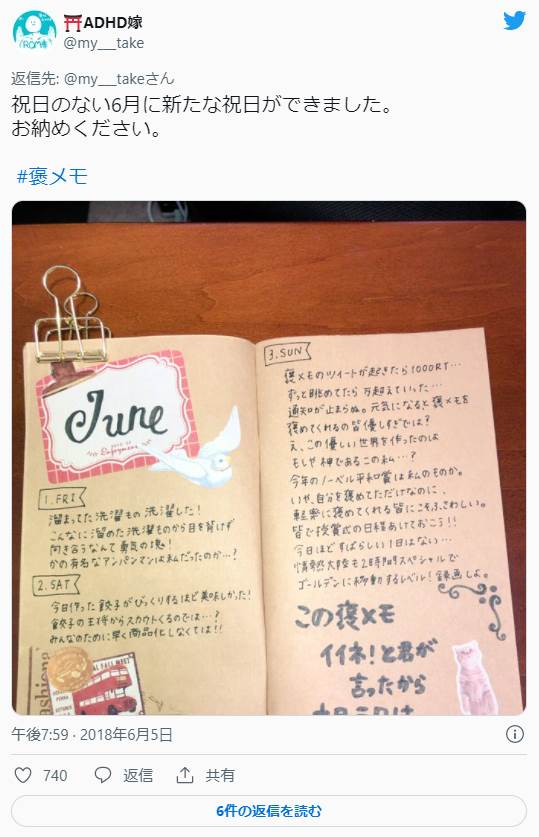 ⛩ADHD嫁
@my___take
返信先: @my___takeさん
祝日のない6月に新たな祝日ができました。
お納めください。
#褒メモ
June
Enjoyment
1.FRI
溜まってた洗濯もの洗濯した!
こんなに溜めた洗濯ものから目を背けず
向き合うなんて勇気の塊!
かの有名なアンパンマンは私だったのか…?
2.SAT
今日作った餃子がびっくりするほど美味しかった!
餃子の王将からスカウトくるのでは…?
みんなのために早く商品化しなくては!!
3.SUN
褒メモのツイートが起きたら1000RT…
ずっと眺めてたら万超えていった…
通知が止まらぬ。元気になると褒メモを
褒めてくれるの皆優しすぎでは?
え、この優しい世界を作ったのは
もしや神であるこの私…?
今年のノーベル平和賞は私のものか。
いや、自分を褒めてただけなのに、
軽率に褒めてくれる皆にこそふさわしい。
皆で授賞式の日程あけておこう!!
今日ほどすばらしい1日はない…
情熱大陸も2時間スペシャルで
ゴールデンに移動するレベル!録画しよ。
この褒メモ
イイネ!と君が
言ったから
午後7:59 · 2018年6月5日
740
返信
共有
6件の返信を読む